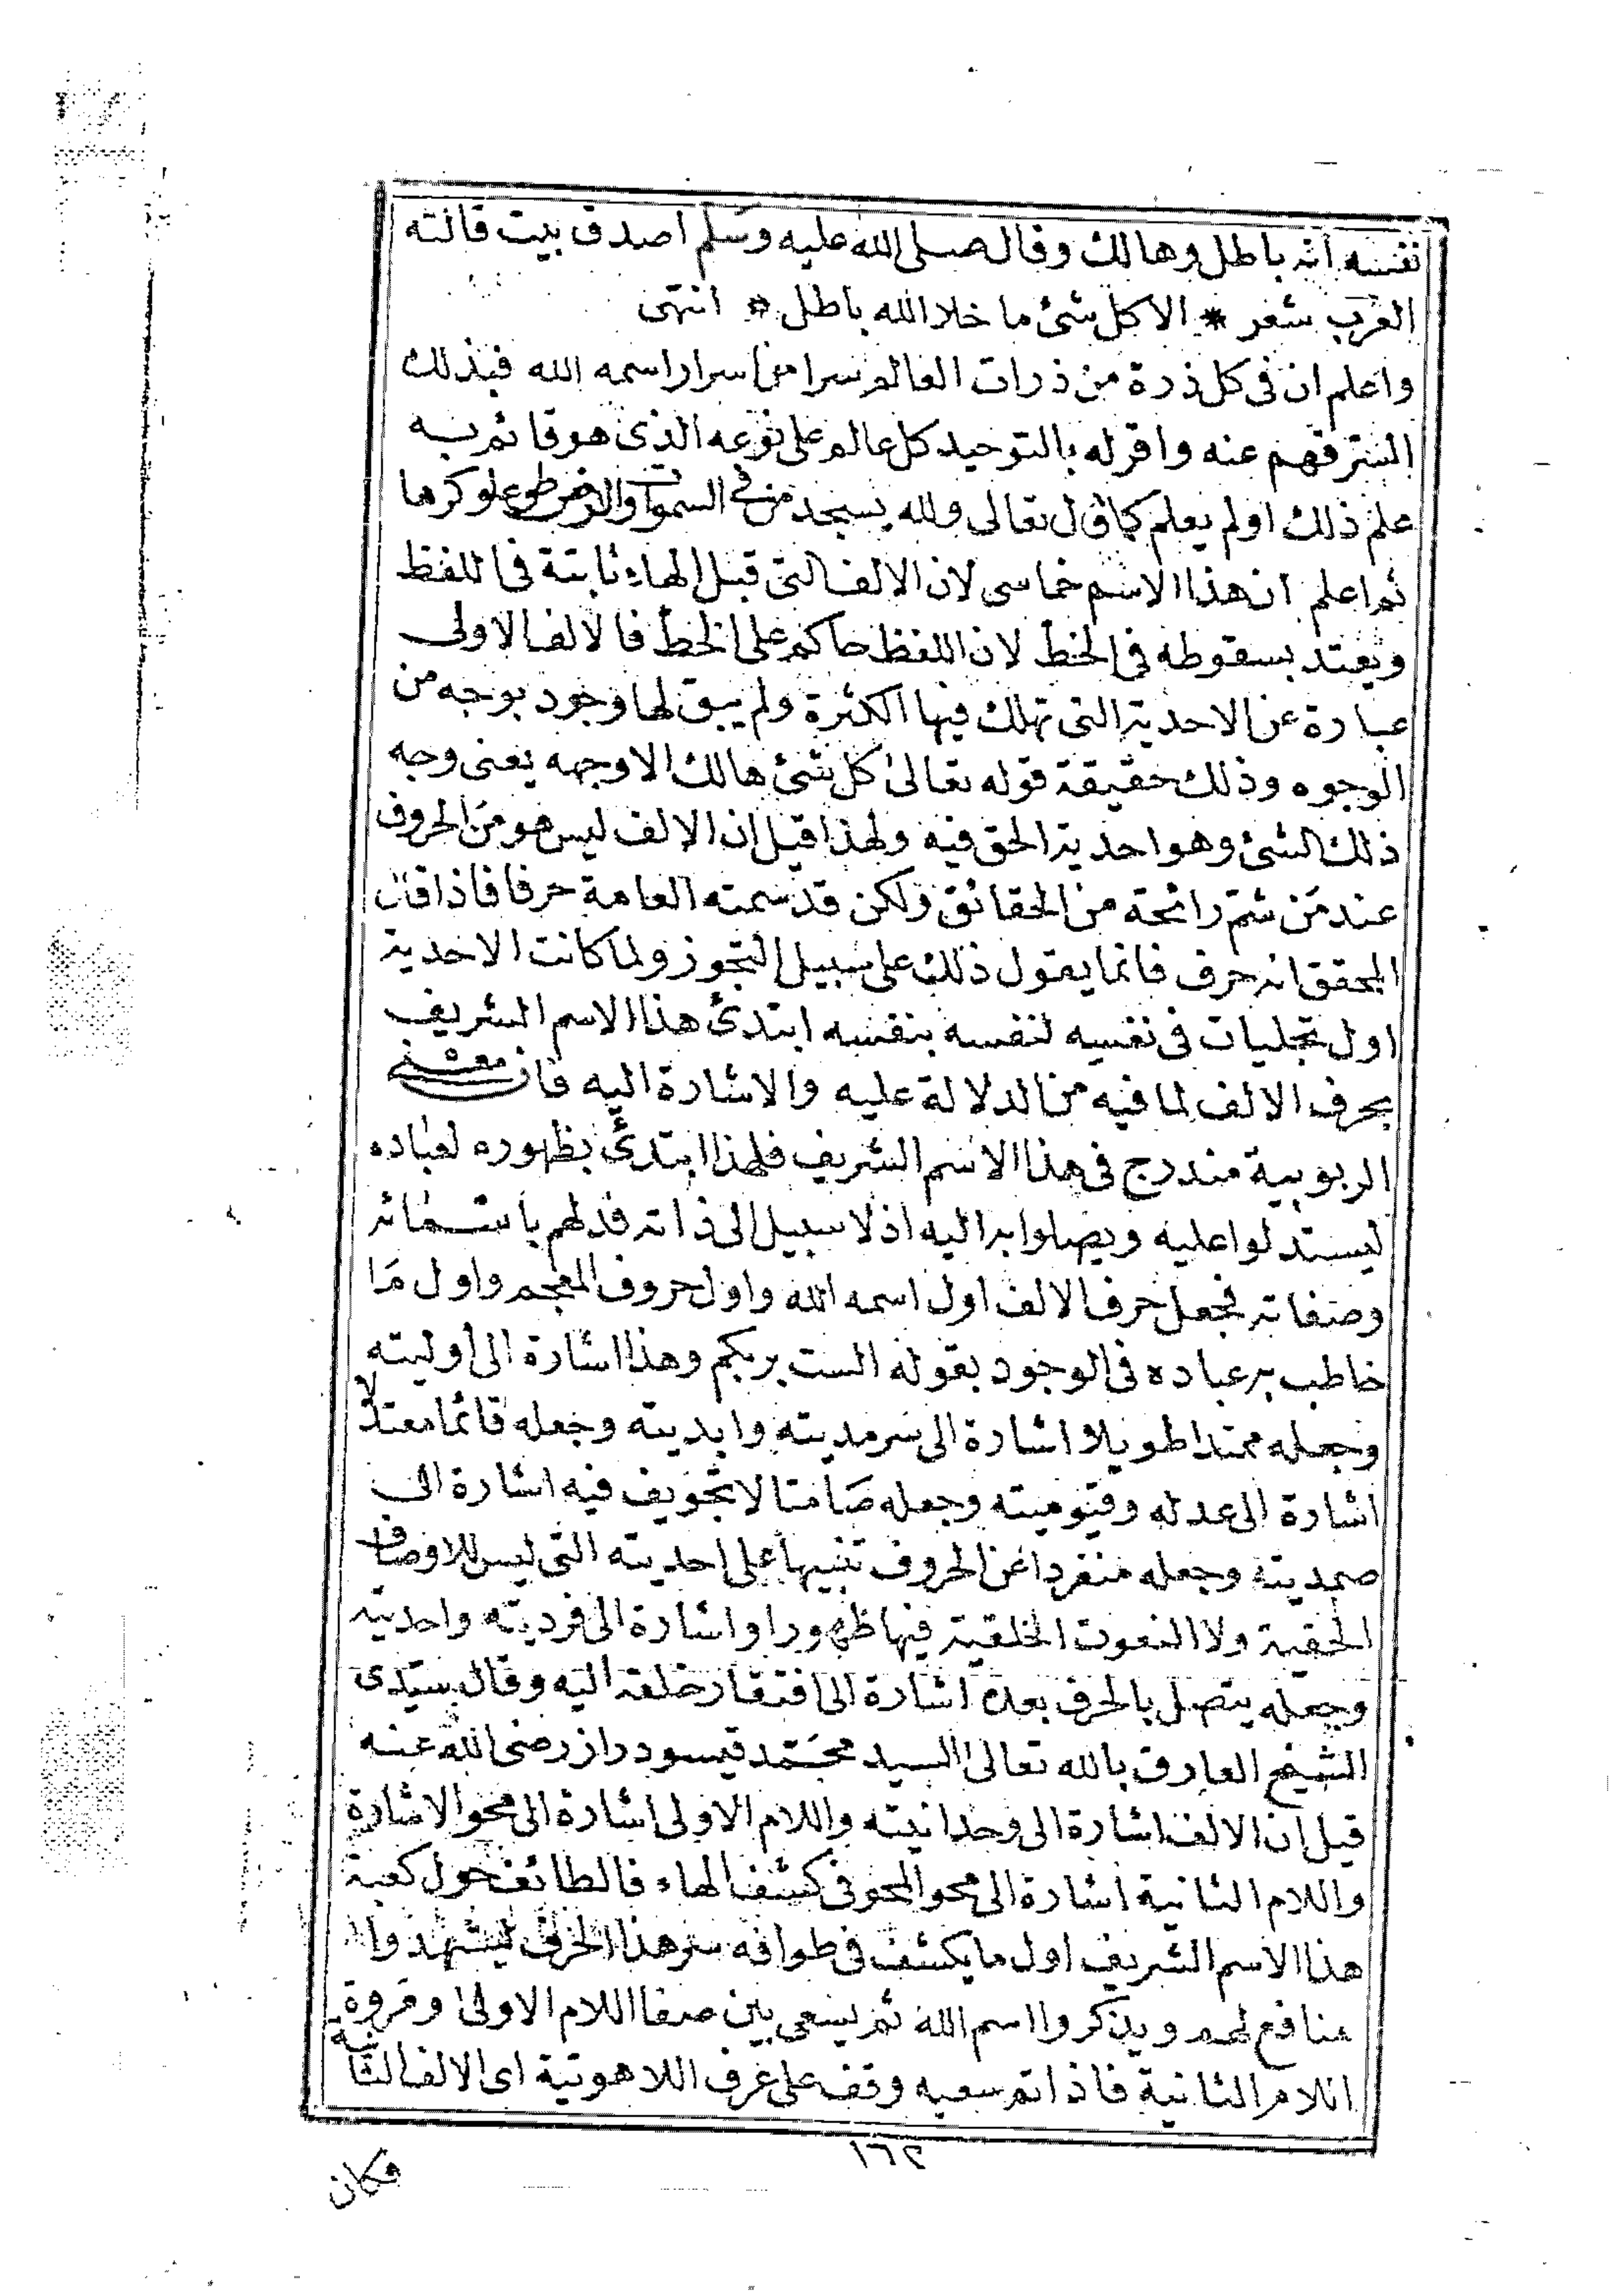 نفسه انه باطل وهالك وقال صلى الله عليه وسلم اصدق بيت قالته
العرب شعر * الا كل شئ ما خلا الله باطل * انتهى
واعلم ان فى كل ذرة من ذرات العالم سرا من اسرار اسمه الله فبذلك
السر فهم عنه واقر له بالتوحيد كل عالم على نوعه الذى هو قائم به
علم ذلك اولم يعلم كما قال تعالى ولله يسجد من فى السموات والارض طوعا وكرها
ثم اعلم ان هذا الاسم خماسى لان الالف التى قبل الهاء ثابتة فى اللفظ
ويعتد بسقوطه فى الخط لان اللفظ حاكم على الخط فالالف الاولى
عبارة عن الاحدية التى تهلك فيها الكثرة ولم يبق لها وجود بوجه من
الوجوه وذلك حقيقة قوله تعالى كل شئ هالك الا وجهه يعنى وجه
ذلك الشئ وهو احدية الحق فيه ولهذا قيل ان الالف ليس هو من الحروف
عند من شم رائحة من الحقائق ولكن قد سمته العامة حرفا فاذا قال
المحقق انه حرف فانما يقول ذلك على سبيل التجوز ولما كانت الاحدية
اول تجليات فى نفسه لنفسه بنفسه ابتدئ هذا الاسم الشريف
بحرف الالف لما فيه من الدلالة عليه والاشارة اليه فان معنى
الربوبية مندرج فى هذا الاسم الشريف فلهذا ابتدئ بظهوره لعباده
ليستدلوا عليه ويصلوا به اليه اذ لا سبيل الى ذاته فدلهم باسمائه
وصفاته فجعل حرف الالف اول اسمه الله واول حروف المعجم واول ما
خاطب به عباده فى الوجود بقوله الست بربكم وهذا اشارة الى اوليته
وجعله ممتدا طويلا اشارة الى سرمديته وابديته وجعله قائما معتدلا
اشارة الى عدله وقيوميته وجعله صامتا لا تجويف فيه اشارة الى
صمديته وجعله منفردا عن الحروف تنبيها على احديته التى ليس للاوصاف
الحقية ولا النعوت الخلقية فيها ظهورا واشارة الى فرديته واحديته
وجعله يتصل بالحرف بعده اشارة الى افتقار خلقه اليه وقال سيدى
الشيخ العارف بالله تعالى السيد محمد قيسودراز رضى الله عنه
قيل ان الالف اشارة الى وحدانيته واللام الاولى اشارة الى محو الاشارة
واللام الثانية اشارة الى محو المحو فى كشف الهاء فالطائف حول كعبة
هذا الاسم الشريف اول ما يكشف فى طوافه سر هذا الحرف ليشهدوا
منافع لهم ويذكروا اسم الله ثم يسعى بين صفا اللام الاولى ومروة
اللام الثانية فاذا تم سعيه وقف على عرف اللاهوتية اى الالف الثانية
١٦٢
فكان